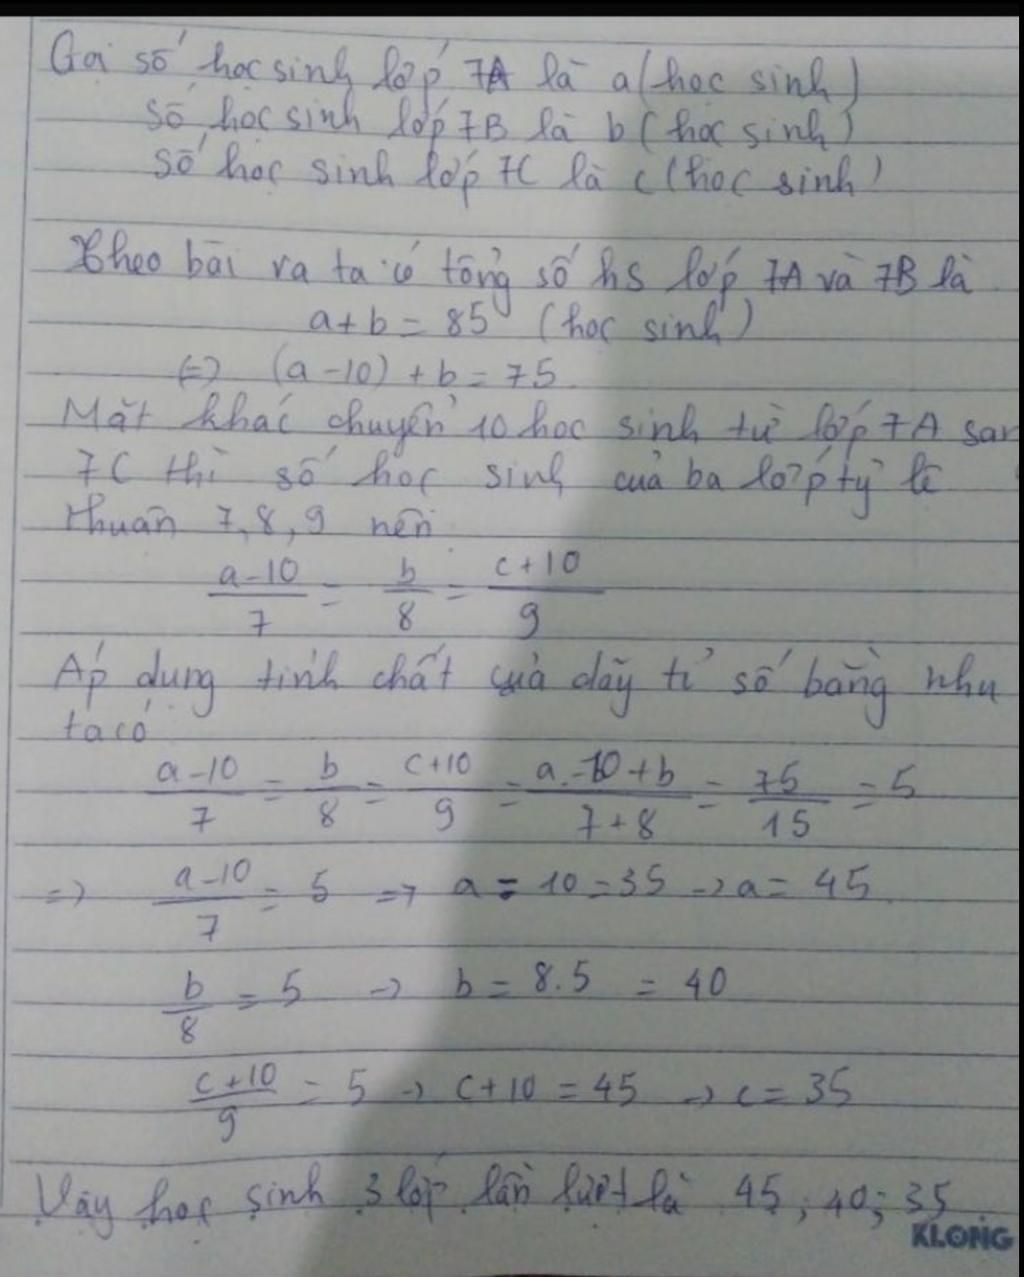 Gọi số học sinh lớp 7A là a (học sinh)
số học sinh lớp 7B là b (học sinh)
số học sinh lớp 7C là c (học sinh)
Theo bài ra ta có tổng số hs lớp 7A và 7B là
a+b = 85 (học sinh)
(=) (a-10) + b = 75
Mặt khác chuyển 10 học sinh từ lớp 7A san
7C thì số học sinh của ba lớp tỷ lệ
thuận 7, 8, 9 nên
a-10/7 = b/8 = c+10/9
Áp dụng tính chất của dãy tỉ số bằng nhu
ta có
a-10/7 = b/8 = c+10/9 = a-10+b/7+8 = 75/15 = 5
=> a-10/7 = 5 => a = 10 = 35 -> a = 45
b/8 = 5 -> b = 8.5 = 40
c+10/9 = 5 -> c+10 = 45 -> c = 35
Vậy học sinh 3 lớp lần lượt là 45; 40; 35
KLONG